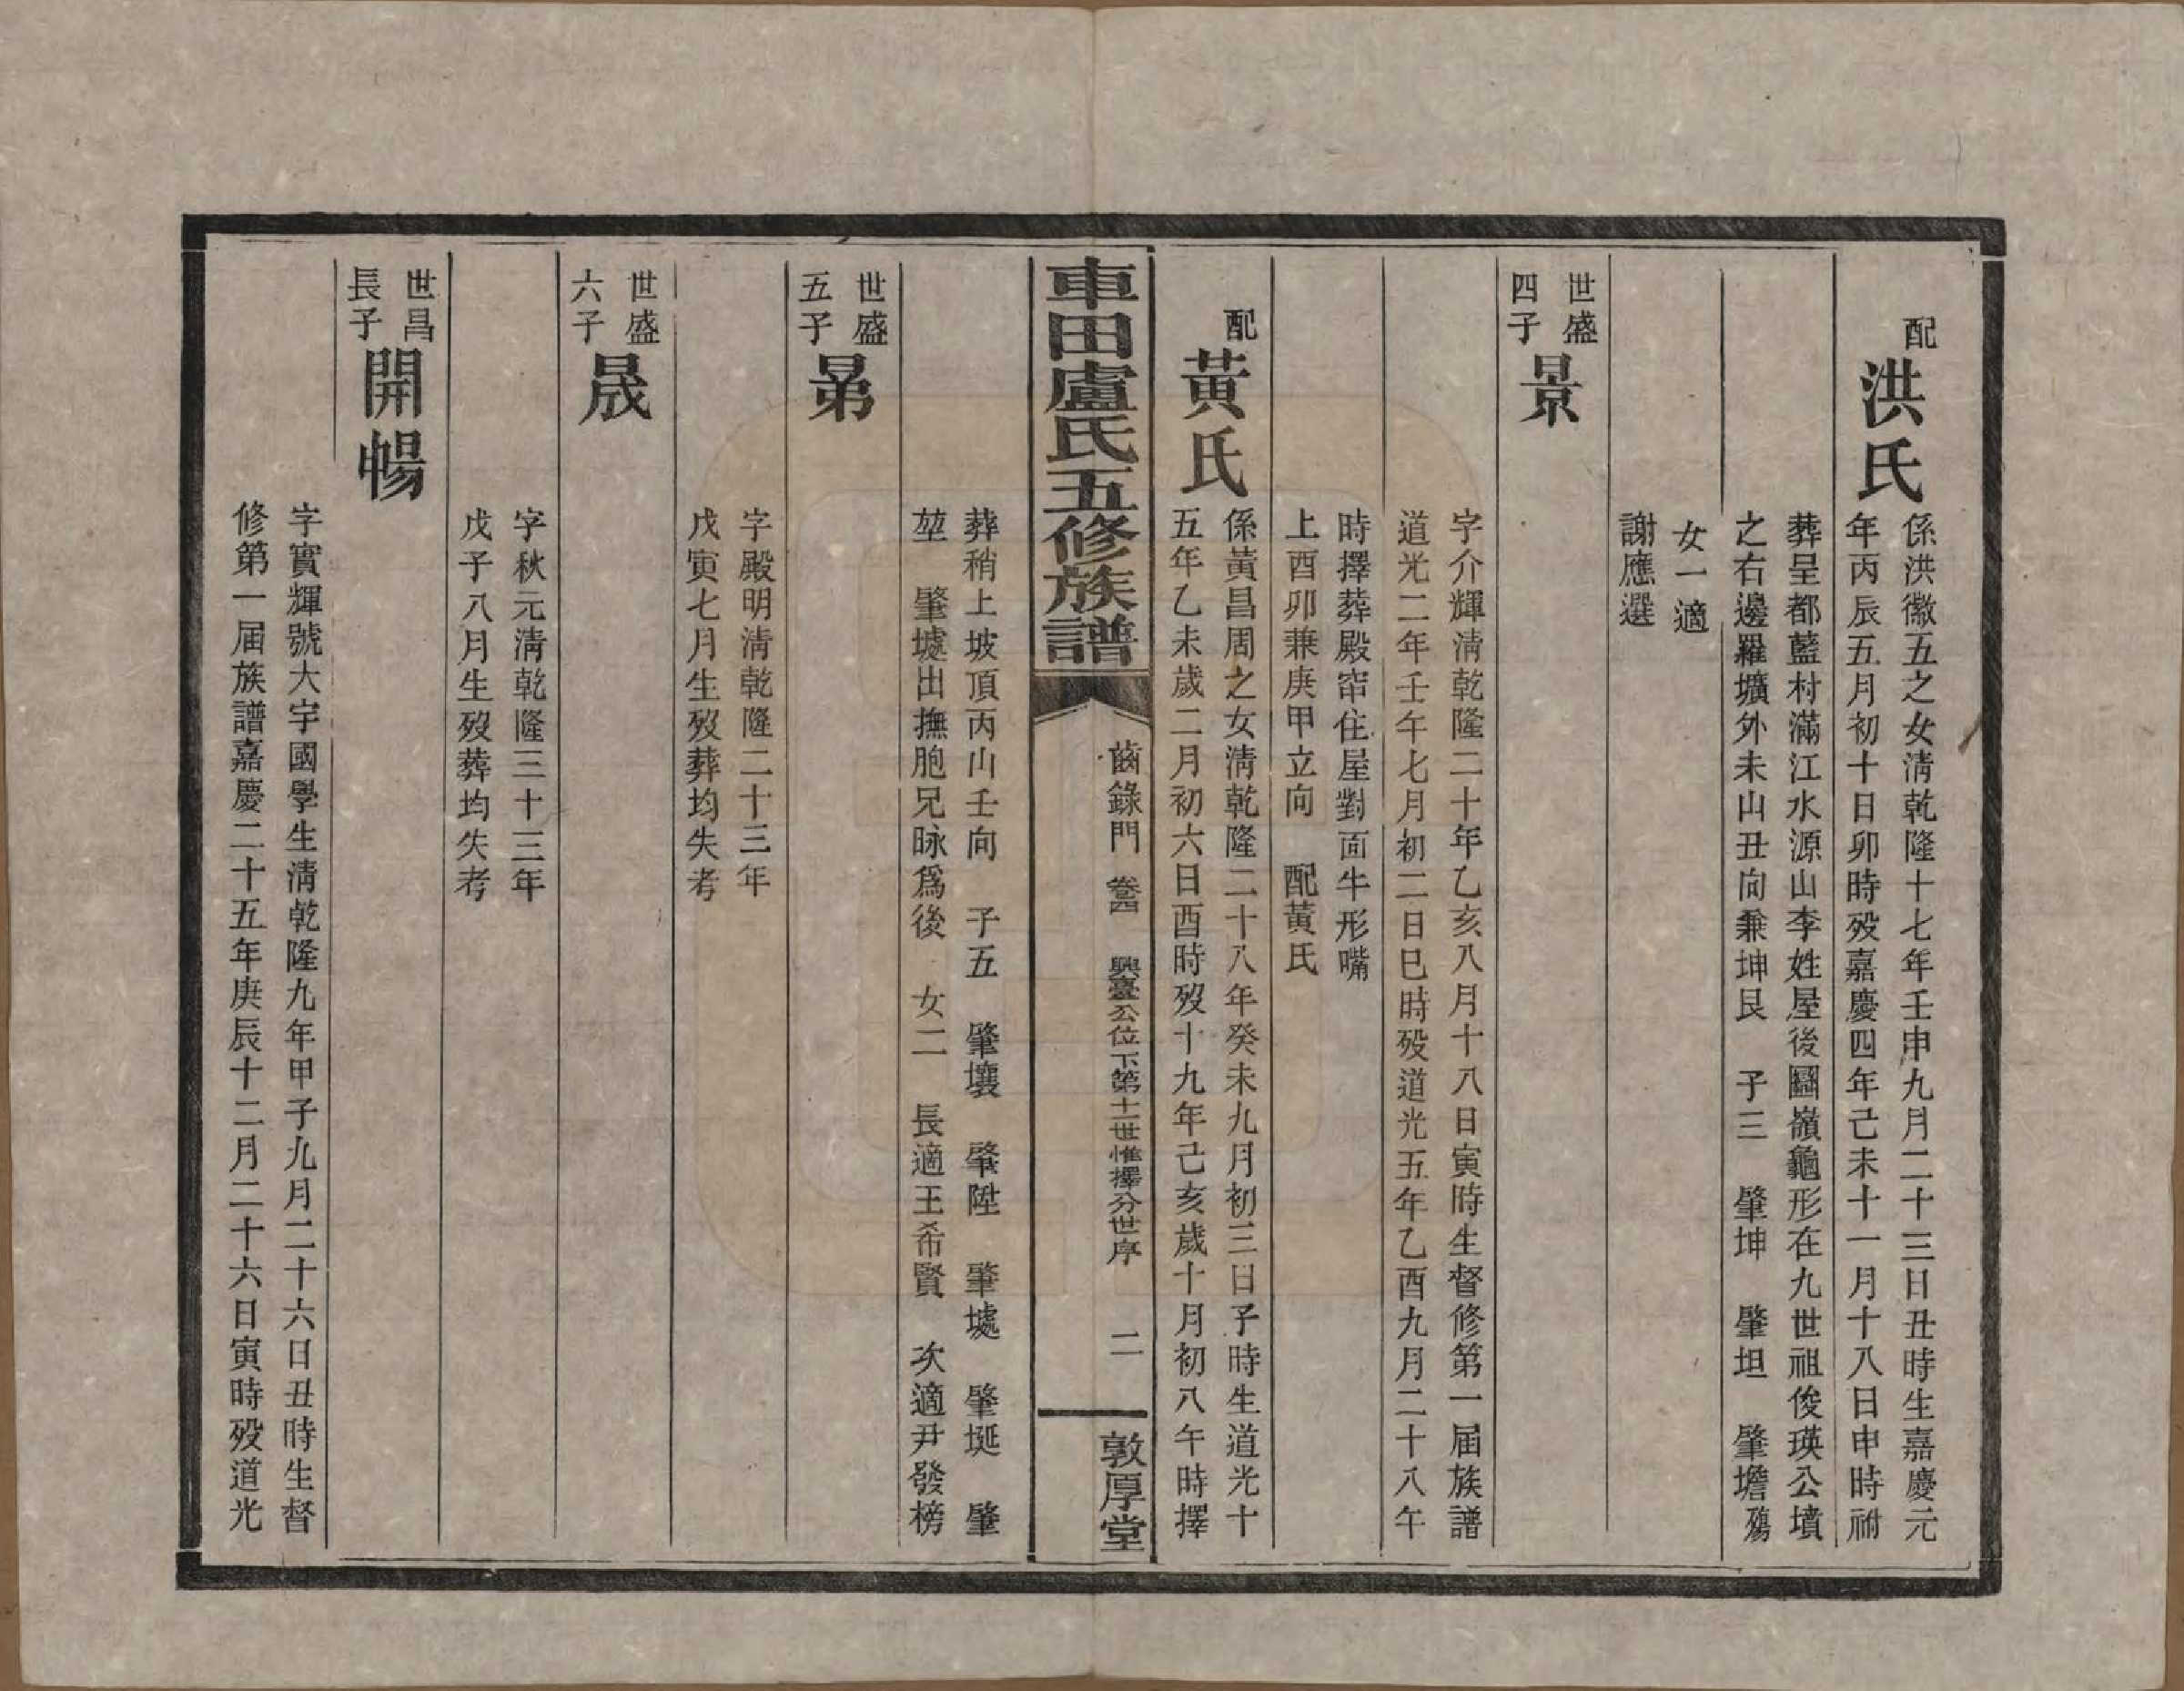 配
洪氏
係洪徽五之女淸乾隆十七年壬申九月二十三日丑時生嘉慶元
年丙辰五月初十日卯時歿嘉慶四年己未十一月十八日申時祔
葬呈都藍村滿江水源山李姓屋後圖嶺龜形在九世祖俊瑛公墳
之右邊羅壙外未山丑向兼坤艮　子三　肇坤　肇坦　肇壋殤
女一適
謝應選
世盛
四子
景
字介輝淸乾隆二十年乙亥八月十八日寅時生督修第一届族譜
道光二年壬午七月初二日巳時歿道光五年乙酉九月二十八午
時擇葬殿帘住屋對面牛形嘴
上酉卯兼庚甲立向　配黃氏
配
黃氏
係黃昌周之女淸乾隆二十八年癸未九月初三日子時生道光十
五年乙未歲二月初六日酉時歿十九年己亥歲十月初八午時擇
車田盧氏五修族譜
齒錄門　卷四　興臺公位下第十一世惟擇分世序　二
敦厚堂
葬稍上坡頂丙山壬向　子五　肇壤　肇陞　肇墟　肇埏　肇
堃　肇墟出撫胞兄昹爲後　女二　長適王希賢　次適尹發榜
世盛
五子
晜
字殿明淸乾隆二十三年
戊寅七月生歿葬均失考
世盛
六子
晟
字秋元淸乾隆三十三年
戊子八月生歿葬均失考
世昌
長子
開暢
字實輝號大宇國學生淸乾隆九年甲子九月二十六日丑時生督
修第一届族譜嘉慶二十五年庚辰十二月二十六日寅時歿道光